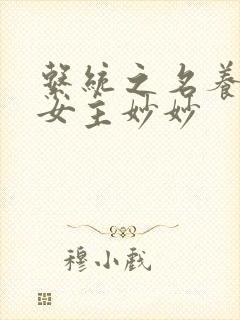 繫統之名養
女主妙妙
穆小戲